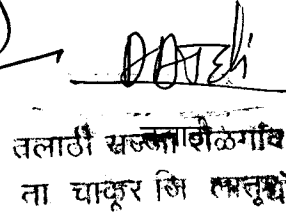 तलाठी सज्जा शेळगांव
ता चाकूर जि लातूर